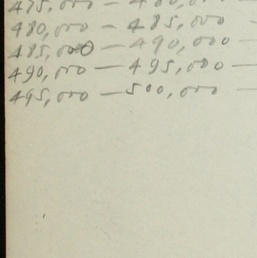 475,000 — 480,000 —
480,000 — 485,000 —
485,000 — 490,000 —
490,000 — 495,000 —
495,000 — 500,000 —